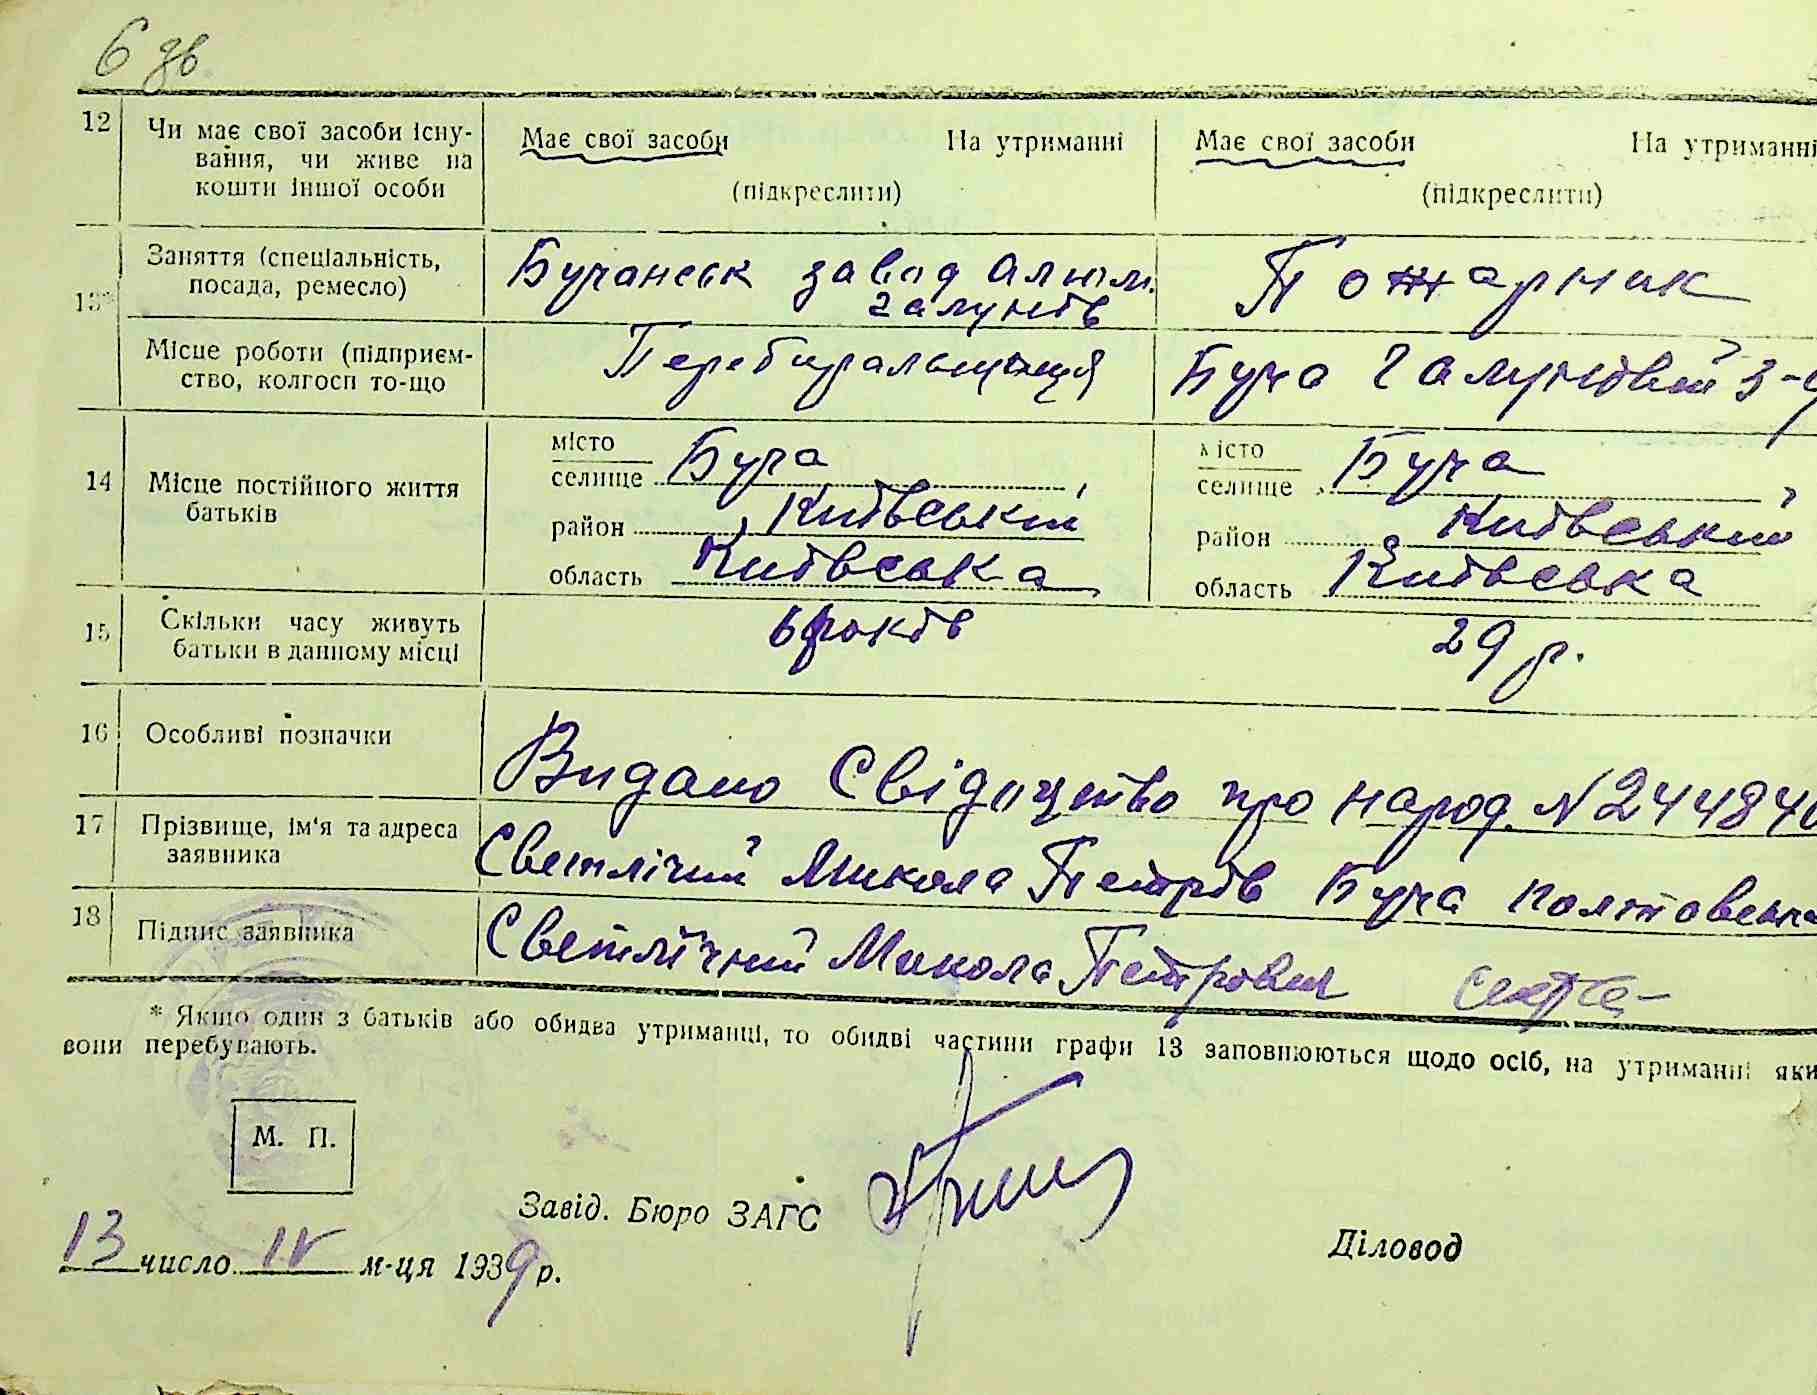 6 зв
12 Чи має свої засоби існу- Має свої засоби На утриманні Має свої засоби На утриманні
вання, чи живе на
кошти іншої особи (підкреслити) (підкреслити)
13* Заняття (спеціальність, Бучанськ завод Алюм. Пожарник
посада, ремесло) галунів
Місце роботи (підприєм- Перебиральщиця Буча Галуновий з-д
ство, колгосп то-що
14 Місце постійного життя місто Буча місто Буча
батьків селище селище
район Київський район Київський
область Київська область Київська
15 Скільки часу живуть 6 років 29 р.
батьки в данному місці
16 Особливі позначки Видано Свідоцтво про народ. N 244840
17 Прізвище, ім'я та адреса Светлічий Микола Петрів Буча Полтовська
заявника
18 Підпис заявника Светлічний Микола Петрович
* Якщо один з батьків або обидва утриманці, то обидві частини графи 13 заповнюються щодо осіб, на утриманні яки
вони перебувають.
М. П.
Завід. Бюро ЗАГС
Діловод
13 число IV м-ця 1939 р.